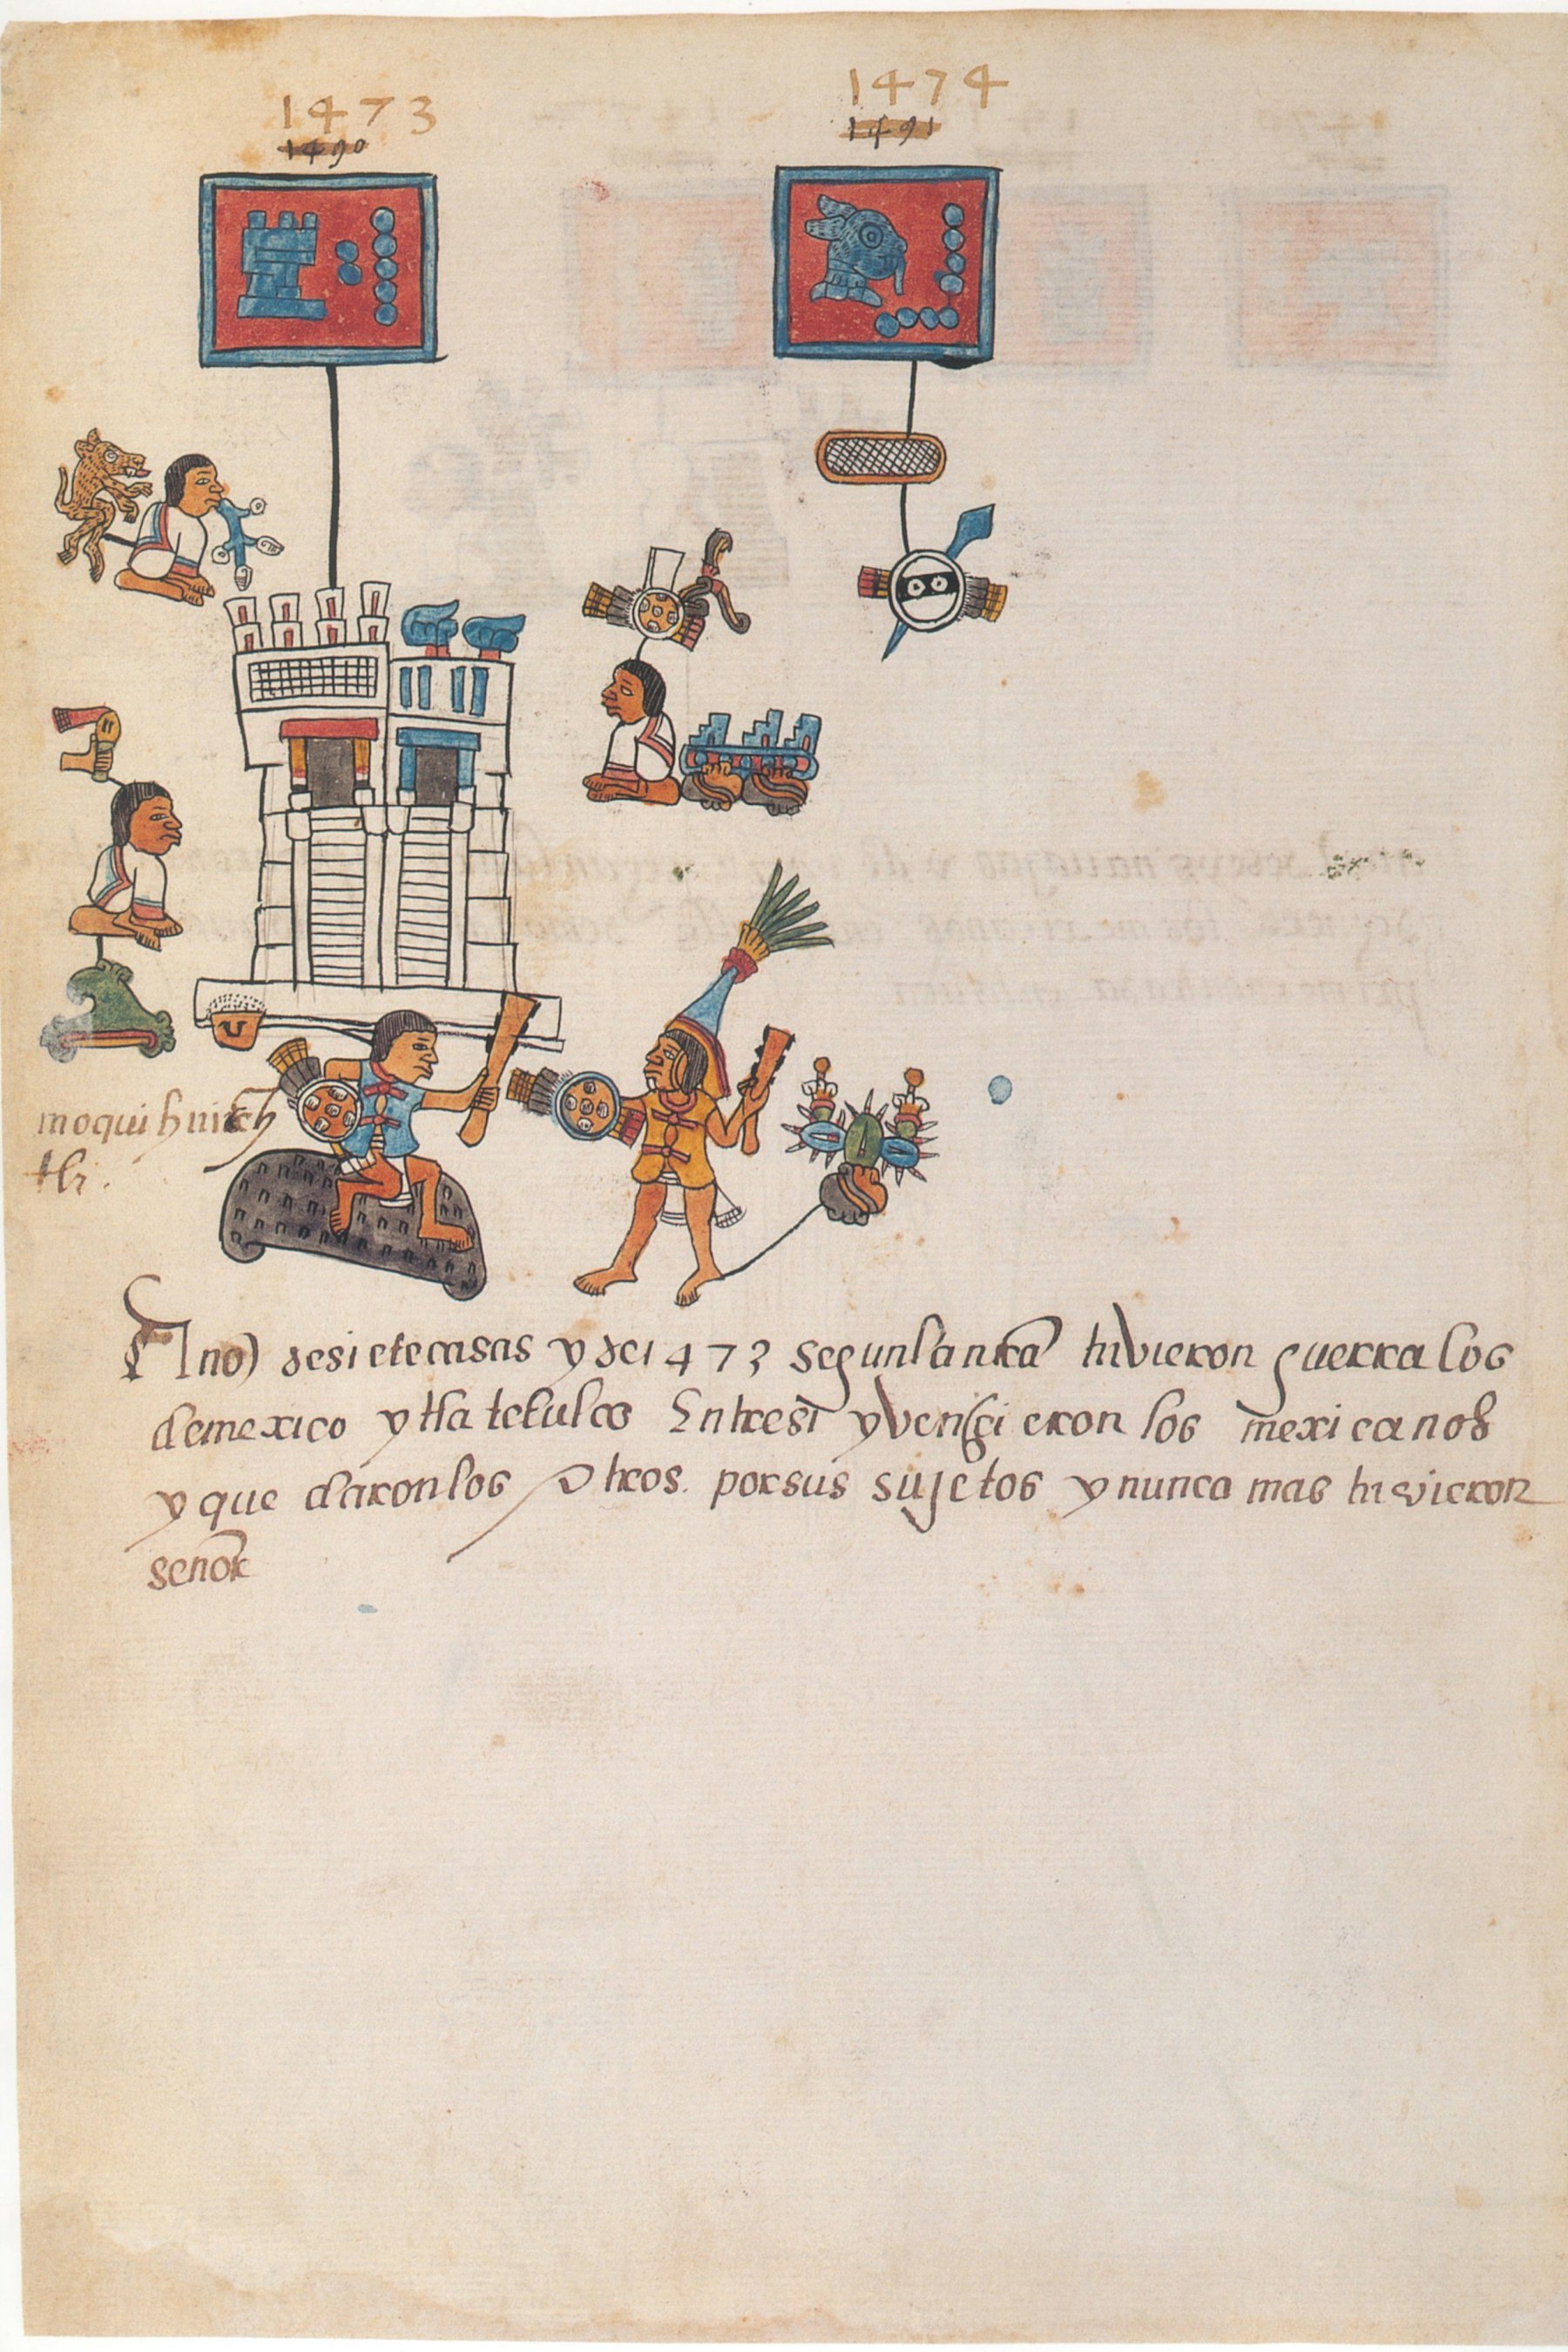 1473
1490
1474
1491
moquihuitz
tli.
Año de siete casas y de 1473 segun la nrã tuvieron guerra los
de mexico y tlatelulco Entre si y vençieron los mexicanos
y quedaron los otros. por sus sujetos y nunca mas tuvieron
señor